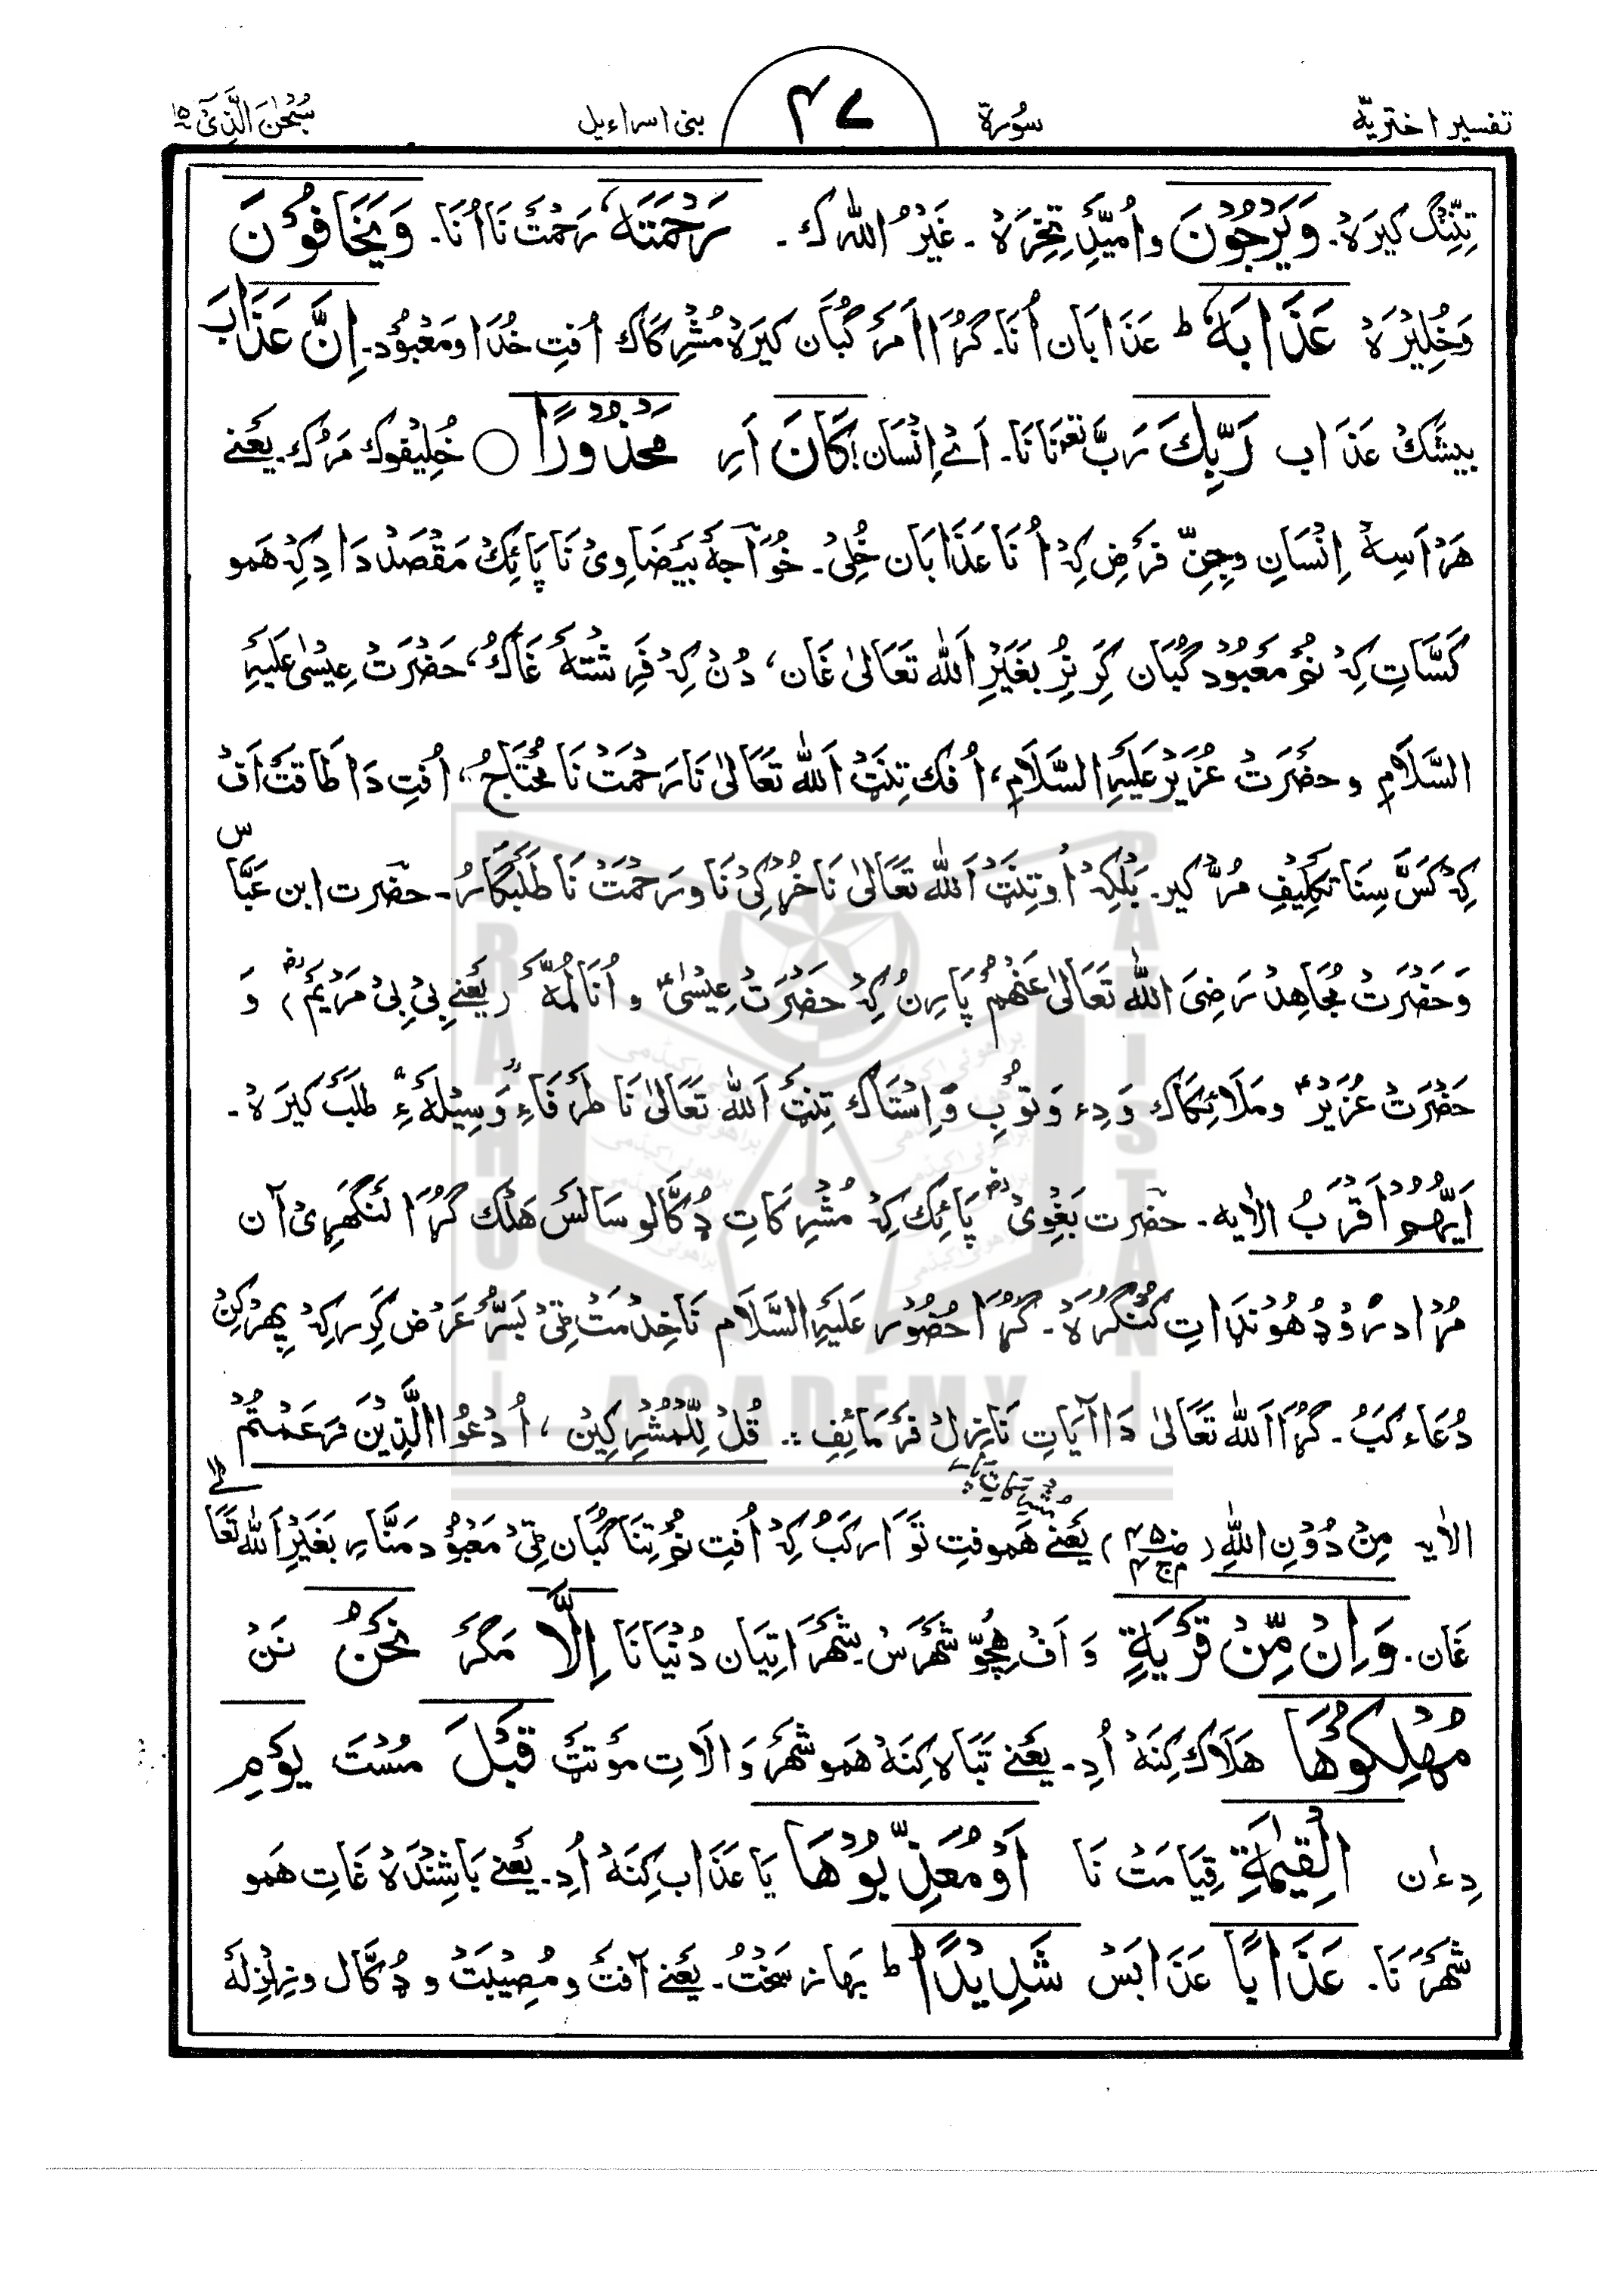 تفسیر اختریّه سُورة ۴۷ بنی اسراءیل سُبْحٰنَ الَّذِیْٓ ۱۵
تِنِّنگ کیرَہ۔ وَیَرْجُوْنَ و اُمیِّد تِخِرَہ ۔ غَیْرُ اللّٰہ ک ۔ رَحْمَتَہٗ رَحْمَتْ نَا اُنَا۔ وَیَخَافُوْنَ
وَخُلِیْرَہ عَذَابَہٗ ط عَذَابان اُنَا۔ گُرَا اَمَرْ گُبَان کیرَہ مُشْرِکَاک اُفتِ خُدَا و مَعْبُوْد۔ اِنَّ عَذَابَ
بیشَکْ عَذَاب رَبِّكَ رَبَّ نَا نَا۔ اَئے اِنْسَان! کَانَ اَرِ مَحْذُوْرًا ○ خُلِیْفوک مَرْک۔ یَعْنے
ہَرْ اَسِہ اِنْسَانِ و جِنِّ فَرَض کِہْ اُنَا عَذَابان خُلِیْ۔ خُوَاجَہ بَیْضَاوِیْ نَا پَائِکْ مَقْصَدْ دَادِ کِہْ ہَمو
کَسَّاتِ کِہْ نُمْ مَعْبُوْد گُبَان کَرِ نِرْ بَغَیْرِ اَللّٰہ تَعَالیٰ غَان، دُنْ کِہْ فَرِشْتَہ غَاکْ، حَضْرَتْ عِیْسیٰ عَلَیْہِ
السَّلَام و حضْرَتْ عُزَیْر عَلَیْہِ السَّلَام، اُفک تِنَتْ اَللّٰہ تَعَالیٰ نَا رَحْمَتْ نَا مُحْتَاجُ، اُفتِ دَا طَاقَتْ اَفْ
کِہْ کَسَّ سِنَا تکلِیْفِ مُرّ کیر۔ بَلْکِہْ اُو تِنَتْ اَللّٰہ تَعَالیٰ نَا خُرُکِیْ نَا و رَحْمَتْ نَا طَلَبْگارُ۔ حضرت ابن عَبَّاس
وَحَضْرَتْ مُجَاھِدْ رَضِیَ اللّٰہُ تَعَالیٰ عَنْھُمْ پَارِنُ کِہْ حَضْرَتْ عِیْسیٰؑ و اُنَا لُمَّہ (یَعْنے بِیْ بِیْ مَرْیَمْ) وَ
حَضْرَتْ عُزَیْرؑ و مَلَائِکاک وَ دِءِ وَ تُوبِ وَ اِسْتَاک تِنَتْ اَللّٰہ تَعَالیٰ نَا طَرَفَاءِ وَسِیْلَہ ءِ طَلَبْ کیرَہ۔
اَیُّھُمْ اَقْرَبُ الاٰیہ۔ حضرت بَغْوِیْ پَائِکْ کِہْ مُشْرِکَاتِ ڈُکَّالو سَالَسْ ھَلْک گُرَا لَنْگھَرِیْ آن
مُرْدَار وُ ڈھُوْنڈاتِ کُنْگُرَہ۔ گُرَا حُضُوْر عَلَیْہِ السَّلَام نَا خِدْمَتْ ٹِیْ بَسُّرْ عَرَض کَرِر کِہْ پِھِرْ کِنْ
دُعَاء کَبُ۔ گُرَا اَللّٰہ تَعَالیٰ دَا آیَاتِ نَازِلْ فَرْمَائِفِ : قُلْ لِلْمُشْرِکِیْن ، اُدْعُوا الَّذِیْنَ زَعَمْتُمْ
الاٰیہ مِنْ دُوْنِ اللّٰہِ یَعْنے ہَموفتِ تَوَار کَبُ کِہْ اُفتِ نُمْ تِنَا گُبَان ٹِیْ مَعْبُوْد مَنَّارِ بَغَیْرِ اَللّٰہ تَعَالٰے
غَان۔ وَاِنْ مِّنْ قَرْیَةٍ وَ اَفْ ہِچُّ شَھْرَسْ شَھْرَاتِیَان دُنْیَا نَا اِلَّا مَگَرْ نَحْنُ نَنْ
مُھْلِکُوْھَا ھَلَاک کِنَہْ اُدِ۔ یَعْنے تَبَاہ کِنَہْ ہَمو شَھْر وَالَاتِ مَوْتَتْ قَبْلَ مُسْتْ یَوْمِ
دِءان الْقِیٰمَةِ قِیَامَتْ نَا اَوْ مُعَذِّبُوْھَا یَا عَذَاب کِنَہْ اُدِ۔ یَعْنے بَاشِنْدَہ غَاتِ ہَمو
شَھْرَ نَا۔ عَذَابًا عَذَابَسْ شَدِیْدًا ط بَھاز سَخْتُ۔ یَعْنے آفَتْ و مُصِیْبَتْ و ڈُکَّال و زِلْزِلَہ